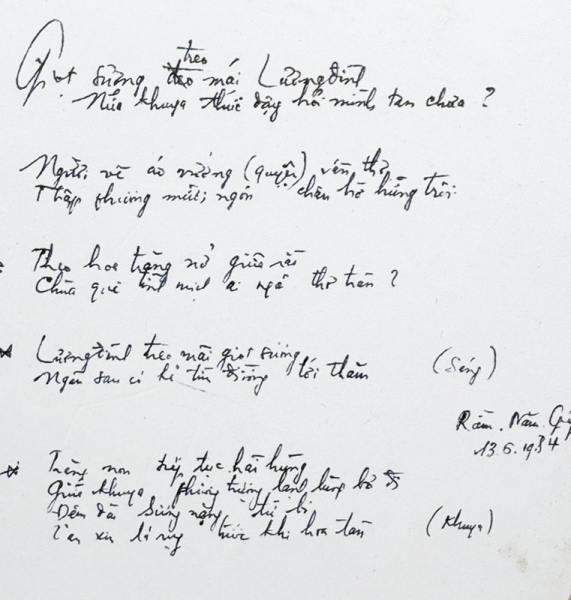 Giọt sương treo mái Lương đình
Nửa khuya thức dậy hỏi mình tan chưa ?
Người về áo vướng (quyện) vần thơ
Thập phương mười ngón chân hờ hững trôi
Theo hoa trăng nở giữa
Chùa quê tịch mịch ai ngồi thở than ?
Lương đình treo mãi giọt sương
Ngàn sau có kẻ tìm đường tới thăm
(Sáng)
Rằm. Năm. Giáp
13.6.1984
Trăng non tiếp tục hãi hùng
Giữa khuya phương trượng lạnh lùng bỏ đi
Đêm dài sương nặng từ bi
lá rụng trước khi hoa tàn
(Khuya)